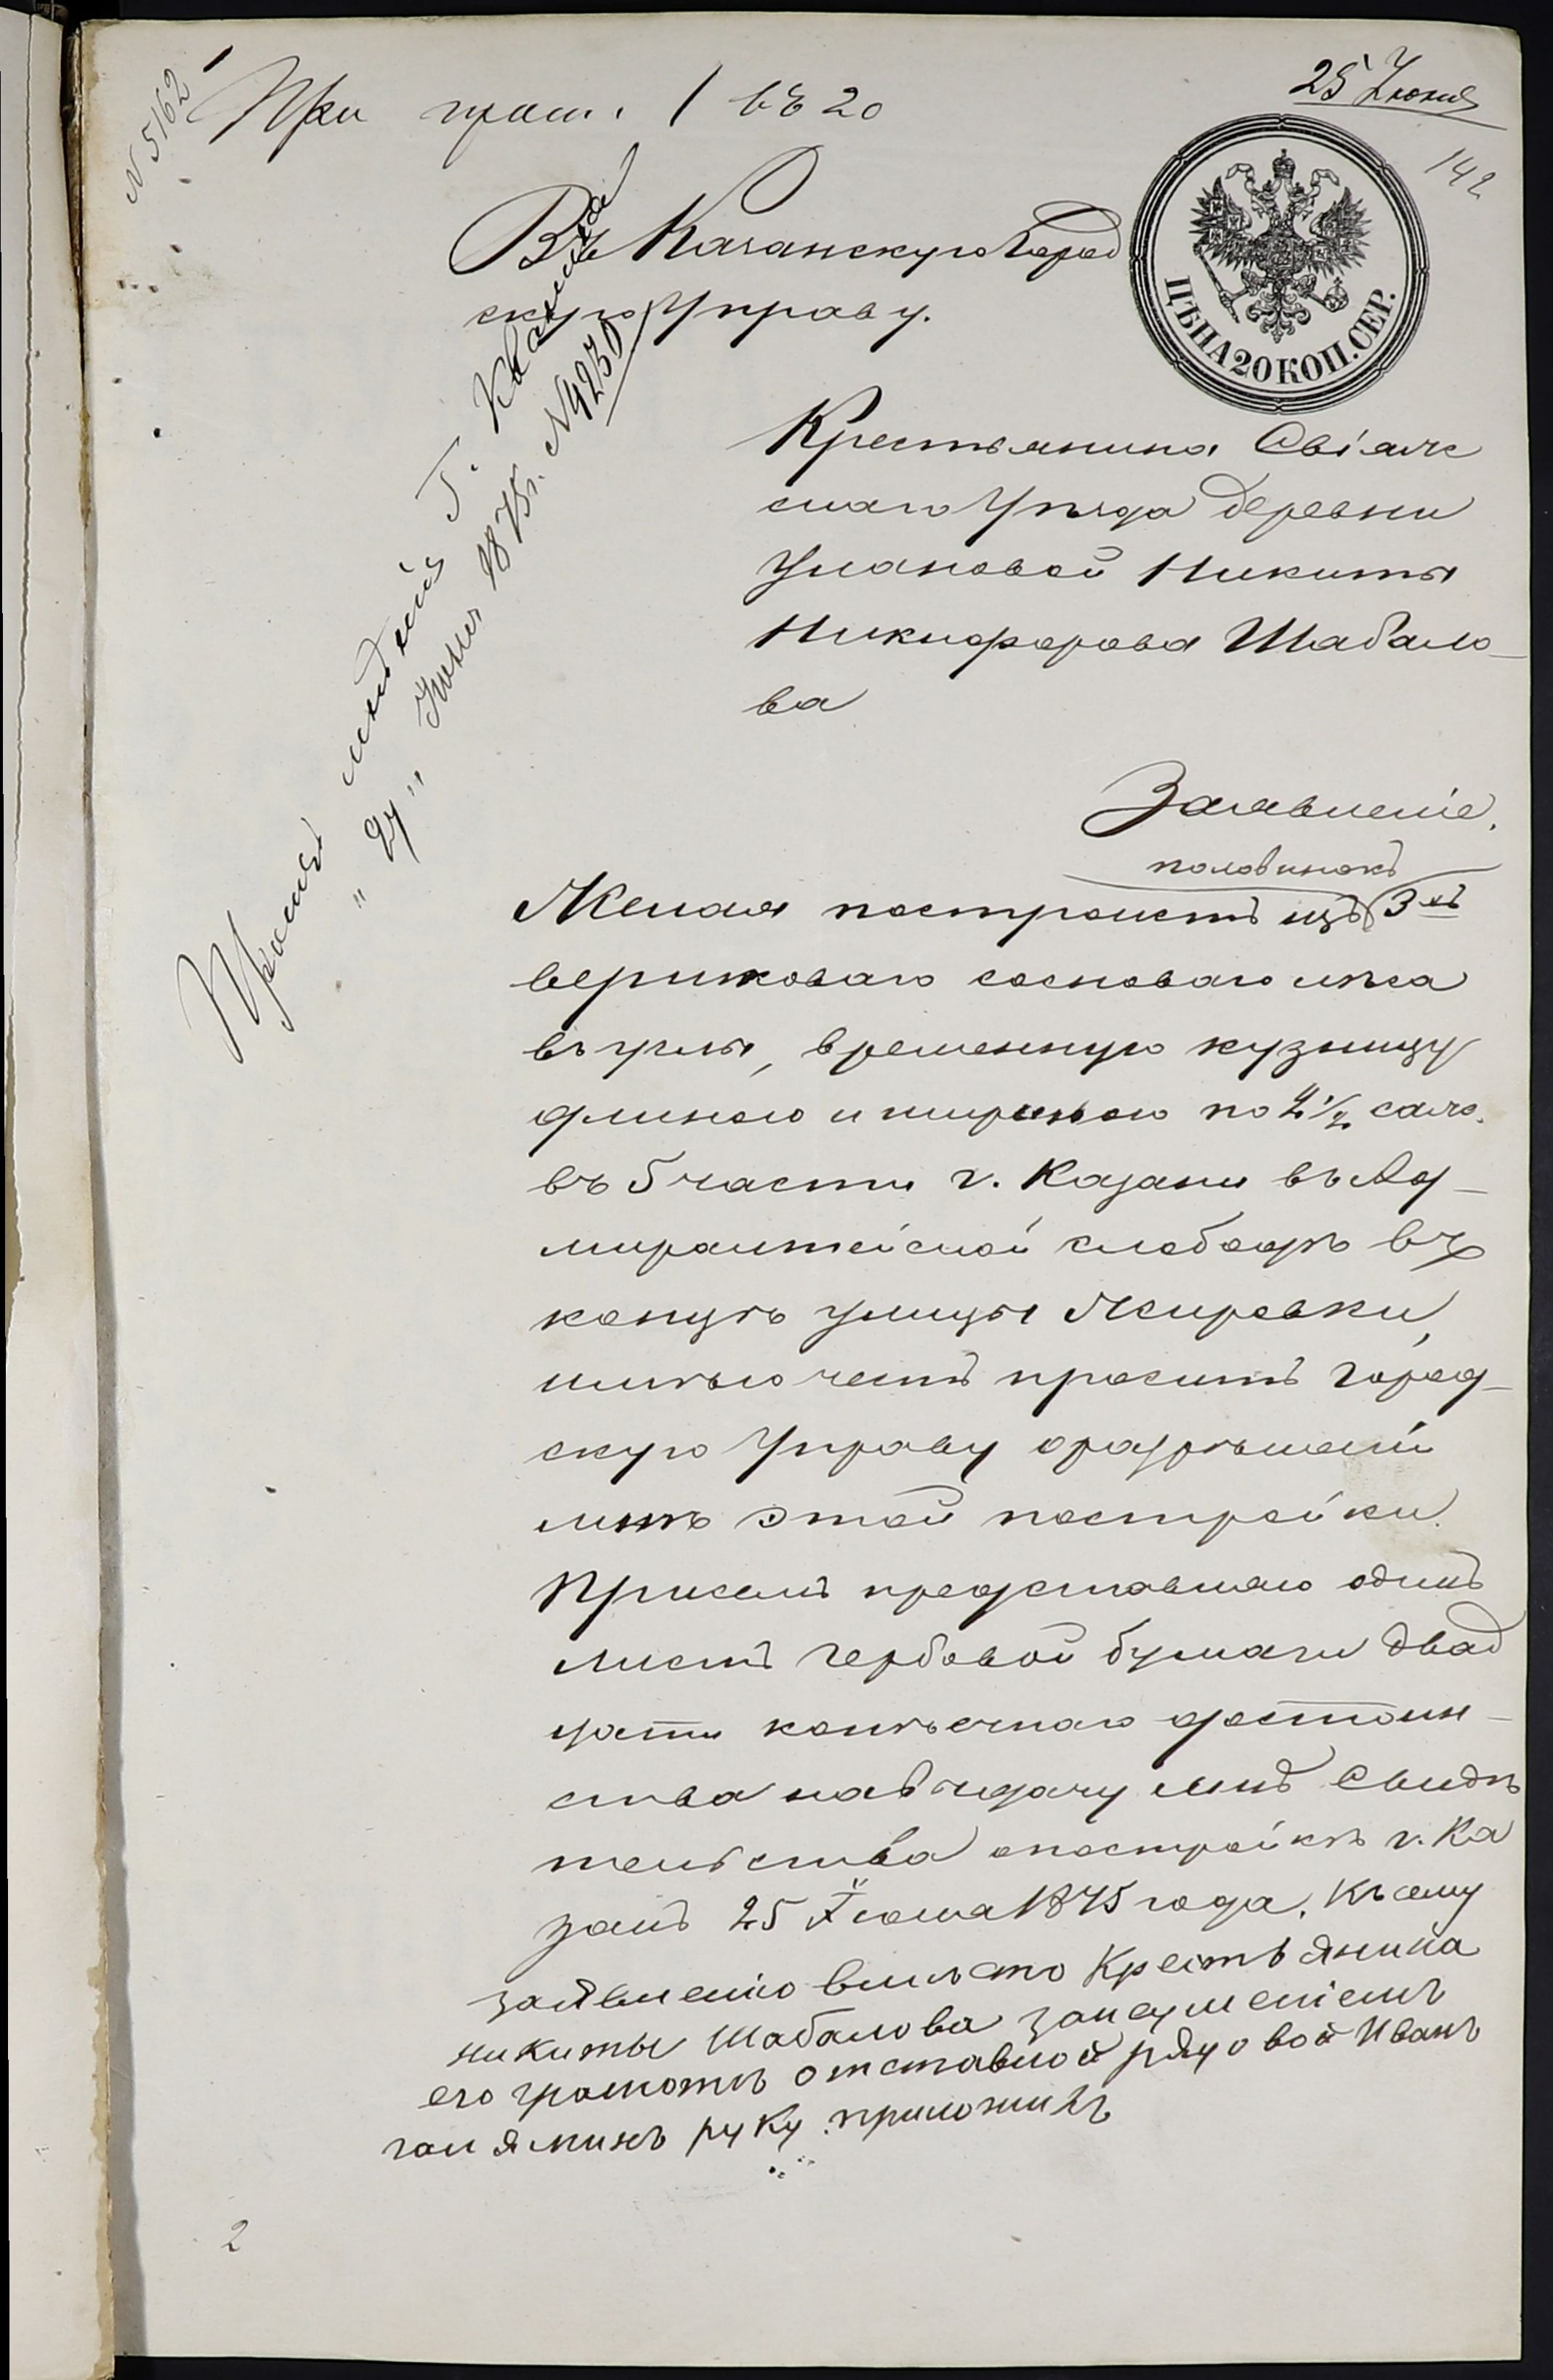 25 Июня
№ 5162
При прош. 1 въ 20
142
Въ Казанскую Город
скую Управу.
ЦѢНА 20 КОП. СЕР.
Крестьянина Свіяж
скаго Уѣзда деревни
Улановой Никиты
Никифорова Шабало-
ва
Г.
"27" Июня 1875 г. № 4230
Заявленіе.
половинокъ
Желая построить изъ 3хъ
вершковаго сосноваго лѣса
въ углы, временную кузницу
длиною и шириною по 2 1/2 саж.
въ 5 части г. Казани въ Ад-
миралтейской слободѣ въ
концѣ улицы Жировки,
имѣю честь просить Город-
скую Управу о разрѣшеніи
мнѣ этой постройки.
При семъ представляю одинъ
листъ гербовой бумаги двад
цати копѣечнаго достоин-
ства на выдачу мнѣ свидѣ
тельства о постройкѣ г. Ка
зань 25 Іюня 1875 года. Къ сему
заявленію вмѣсто Крестьянина
никиты Шабалова за неумѣніемъ
его грамотѣ отставной рядовой Иванъ
руку приложилъ
2